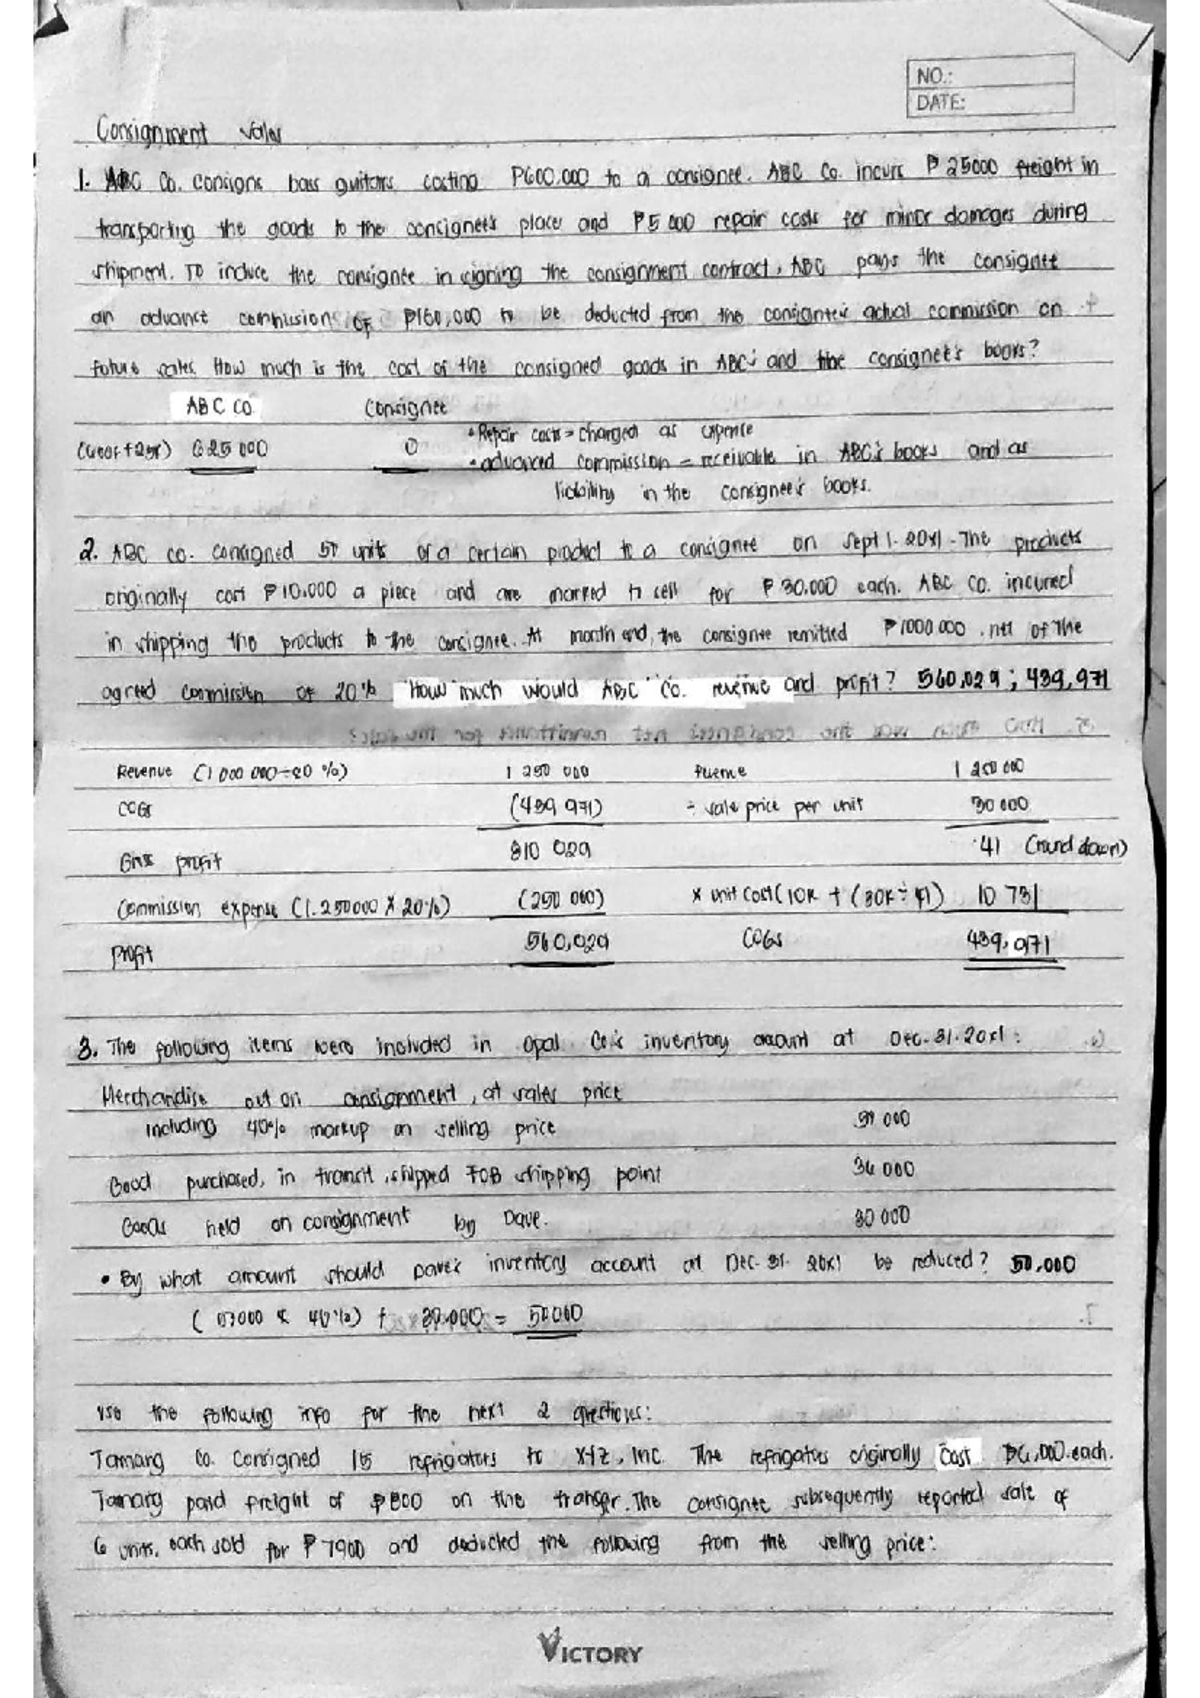 NO.:
DATE:
Consignment Sales
1. ABC Co. consigns bass guitars costing P600.000 to a consignee. ABC Co. incurs P 25000 freight in
transporting the goods to the consignee's place and P5 000 repair costs for minor damages during
shipment. To induce the consignee in signing the consignment contract, ABC pays the consignee
an advance commission of P160,000 to be deducted from the consignee's actual commission on
future sales. How much is the cost of the consigned goods in ABC's and the consignee's books?
ABC CO. Consignee
(600k+25k) 625 000 0 • Repair costs = charged as expense
• advanced commission = receivable in ABC's books and as
liability in the consignee's books.
2. ABC co. consigned 50 units of a certain product to a consignee on Sept 1. 20x1. The products
originally cost P10.000 a piece and are marked to sell for P 30.000 each. ABC CO. incurred
in shipping the products to the consignee. At month end, the consignee remitted P1000 000. net of the
agreed commission of 20% How much would ABC Co. revenue and profit? 560,029 ; 439,971
Revenue (1 000 000÷80 %) 1 250 000 1 250 000
COGS (439 971) ÷ sale price per unit 30 000
Gross profit 810 029 41 (round down)
Commission expense (1.250000 x 20%) (250 000) x unit cost (10k + (30k ÷ 41) 10 731
Profit 560,029 COGS 439,971
3. The following items were included in Opal Co's inventory account at Dec. 31. 20x1:
Merchandise out on consignment, at sales price
including 40% markup on selling price
Good purchased, in transit, shipped FOB shipping point 36 000
Goods held on consignment by Dave. 30 000
• By what amount should Dave's inventory account at Dec. 31. 20x1 be reduced? 50,000
x 40%) + = 50000
Use the following info for the next 2 questions:
Tamang Co. Consigned 15 refrigators to XYZ, Inc. The refrigators originally cost P6,000.each.
Tamang paid freight of P800 on the transfer. The consignee subsequently reported sale of
6 units, each sold for P 7900 and deducted the following from the selling price:
VICTORY